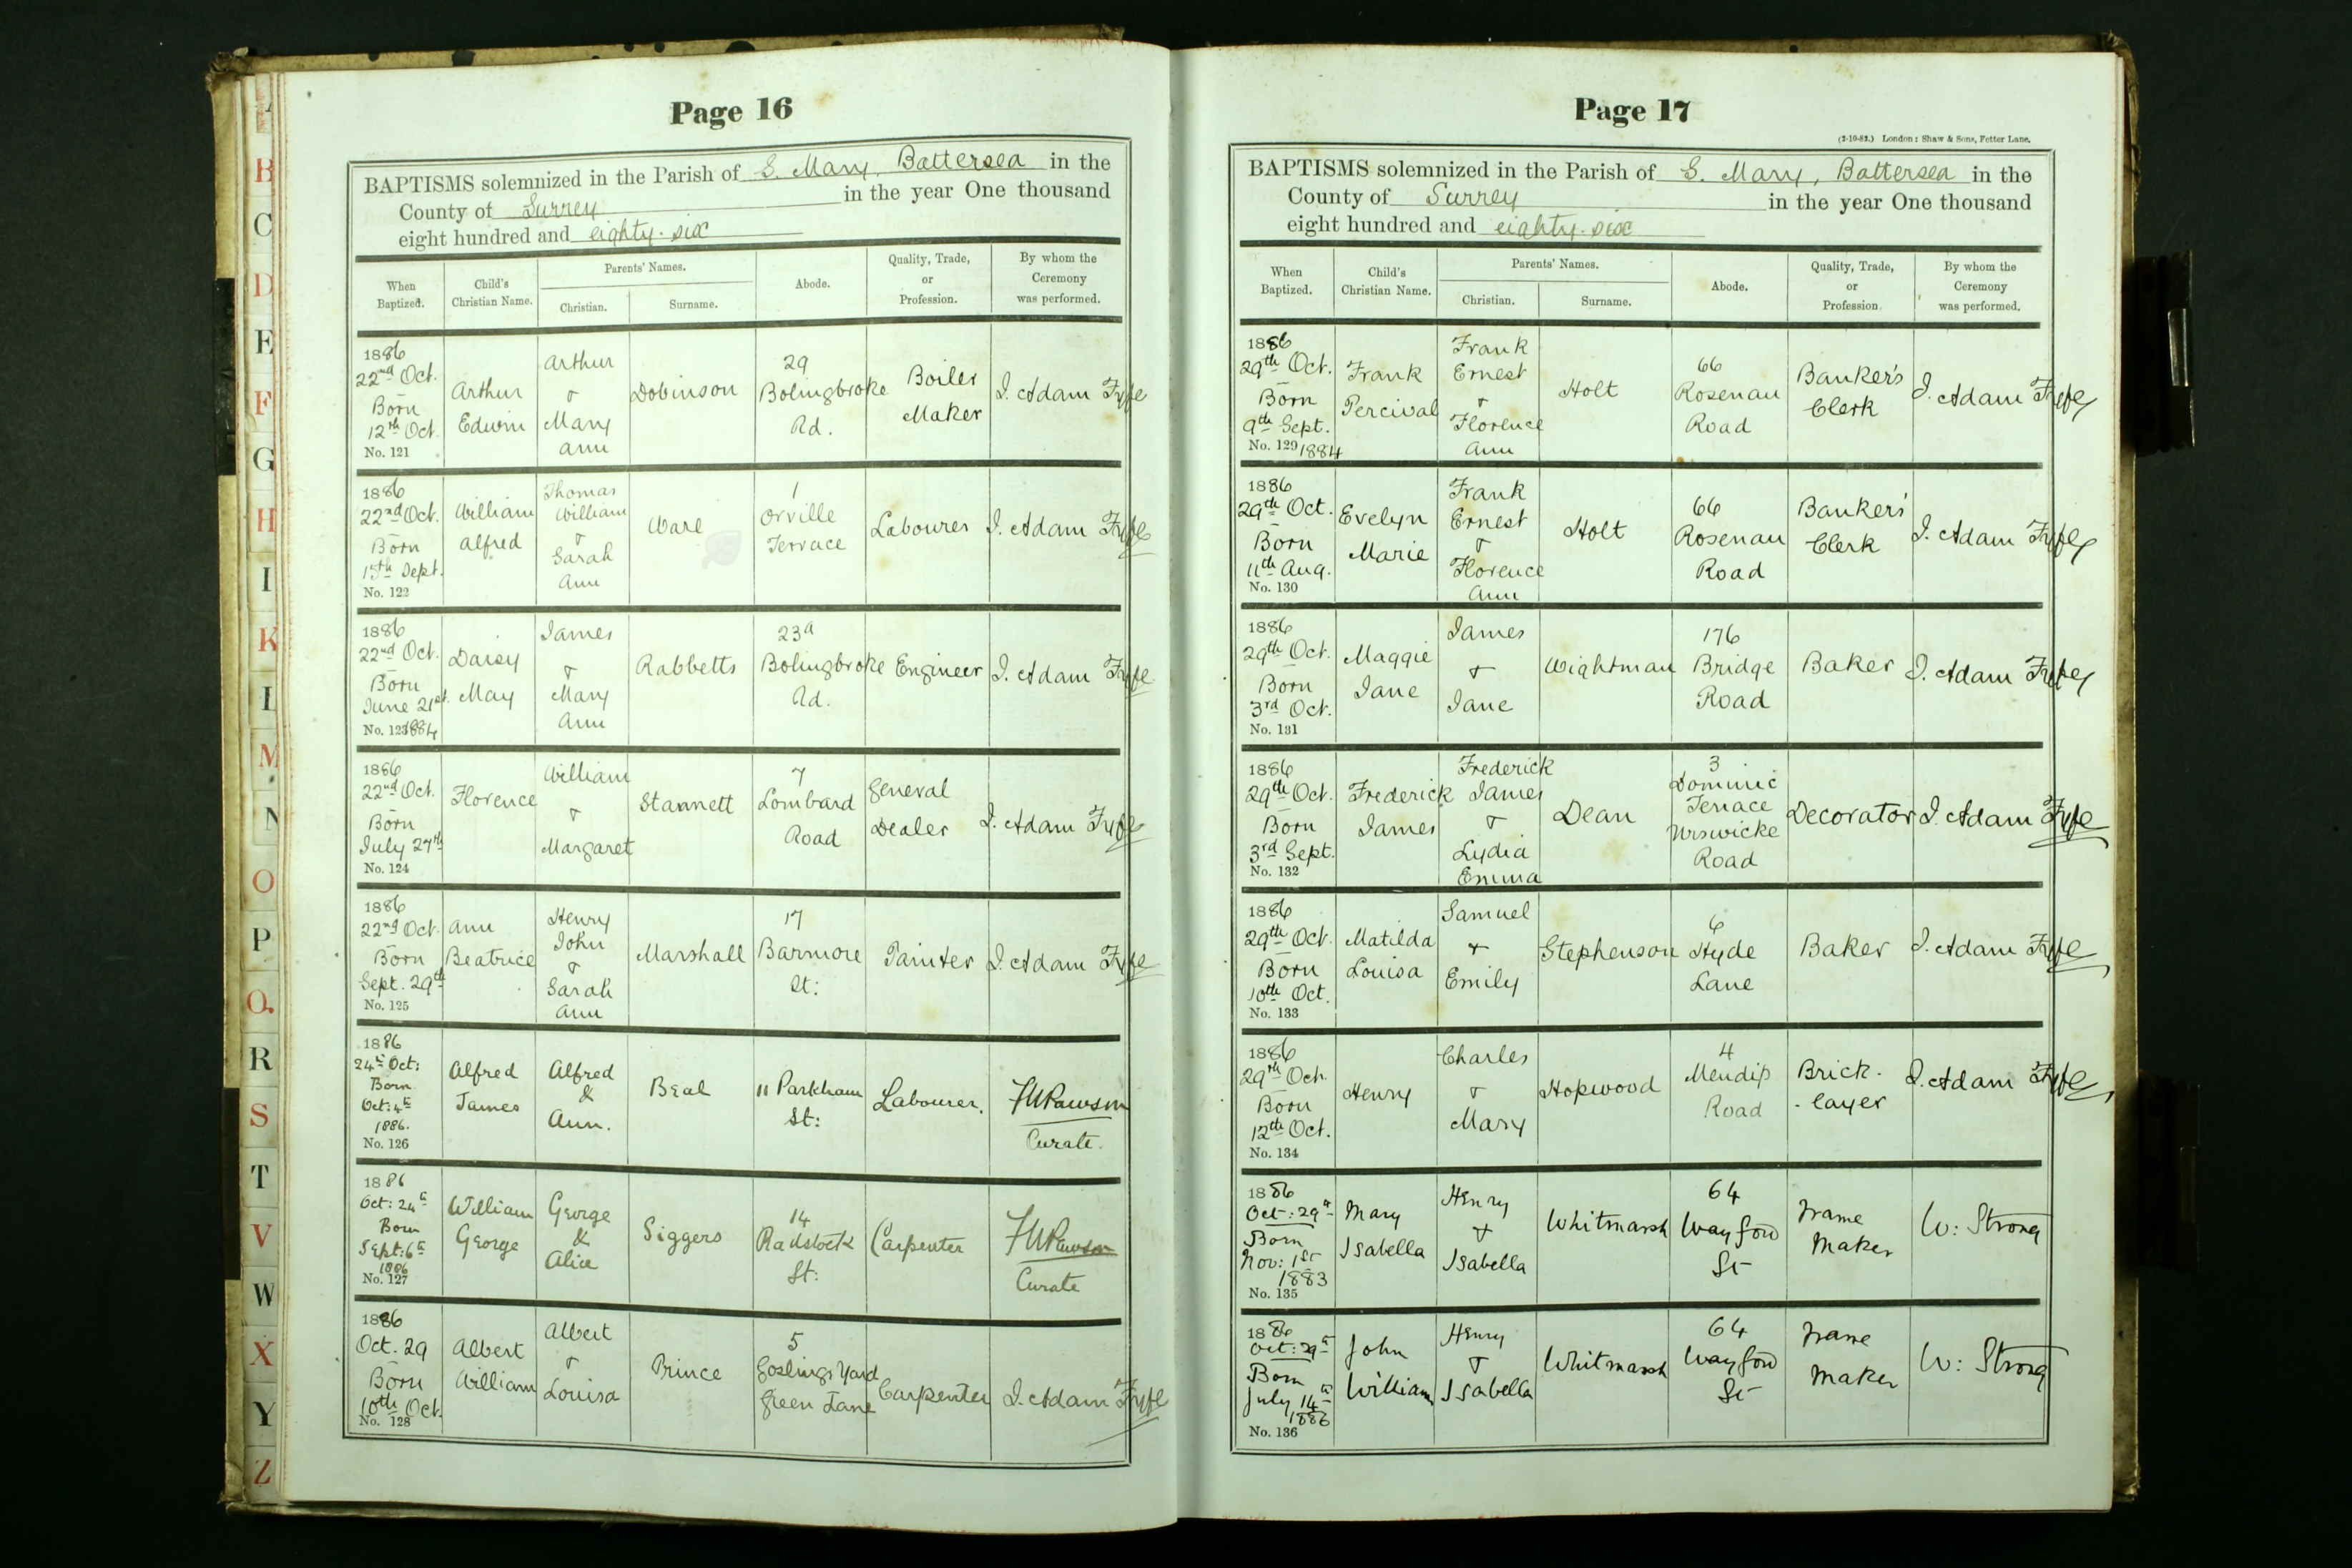 Page 16
BAPTISMS solemnized in the Parish of S. Mary, Battersea in the
County of Surrey in the year One thousand
eight hundred and eighty-six
When Baptized. Child's Christian Name. Parents' Names. Christian. Surname. Abode. Quality, Trade, or Profession. By whom the Ceremony was performed.
1886
22nd Oct.
Born
12th Oct.
No. 121
Arthur
Edwin
Arthur
&
Mary
Ann
Dobinson
29
Bolingbroke
Rd.
Boiler
Maker
J. Adam Fyfe
1886
22nd Oct.
Born
15th Sept.
No. 122
William
Alfred
Thomas
William
&
Sarah
Ann
Ware
1
Orville
Terrace
Labourer
J. Adam Fyfe
1886
22nd Oct.
Born
June 21st
No. 123 1884
Daisy
May
James
&
Mary
Ann
Rabbetts
23a
Bolingbroke
Rd.
Engineer
J. Adam Fyfe
1886
22nd Oct.
Born
July 27th
No. 124
Florence
William
&
Margaret
Stannett
7
Lombard
Road
General
Dealer
J. Adam Fyfe
1886
22nd Oct.
Born
Sept. 29th
No. 125
Ann
Beatrice
Henry
John
&
Sarah
Ann
Marshall
17
Barmore
St:
Painter
J. Adam Fyfe
1886
24th Oct:
Born
Oct: 4th
1886.
No. 126
Alfred
James
Alfred
&
Ann.
Beal
11 Parkham
St:
Labourer.
Curate.
1886
Oct: 24th
Born
Sept: 6th
1886
No. 127
William
George
George
&
Alice
Siggers
14
Radstock
St:
Carpenter
Curate
1886
Oct. 29
Born
10th Oct.
No. 128
Albert
William
Albert
&
Louisa
Prince
5
Goslings Yard
Green Lane
Carpenter
J. Adam Fyfe
Page 17
(2-10-82.) London: Shaw & Sons, Fetter Lane.
BAPTISMS solemnized in the Parish of S. Mary, Battersea in the
County of Surrey in the year One thousand
eight hundred and eighty-six
When Baptized. Child's Christian Name. Parents' Names. Christian. Surname. Abode. Quality, Trade, or Profession. By whom the Ceremony was performed.
1886
29th Oct.
Born
9th Sept.
No. 129 1884
Frank
Percival
Frank
Ernest
&
Florence
Ann
Holt
66
Rosenau
Road
Banker's
Clerk
J. Adam Fyfe
1886
29th Oct.
Born
11th Aug.
No. 130
Evelyn
Marie
Frank
Ernest
&
Florence
Ann
Holt
66
Rosenau
Road
Banker's
Clerk
J. Adam Fyfe
1886
29th Oct.
Born
3rd Oct.
No. 131
Maggie
Jane
James
&
Jane
Wightman
176
Bridge
Road
Baker
J. Adam Fyfe
1886
29th Oct.
Born
3rd Sept.
No. 132
Frederick
James
Frederick
James
&
Lydia
Emma
Dean
3
Dominic
Terrace
Urswicke
Road
Decorator
J. Adam Fyfe
1886
29th Oct.
Born
10th Oct.
No. 133
Matilda
Louisa
Samuel
&
Emily
Stephenson
6
Hyde
Lane
Baker
J. Adam Fyfe
1886
29th Oct.
Born
12th Oct.
No. 134
Henry
Charles
&
Mary
Hopwood
4
Mendip
Road
Brick-
-layer
J. Adam Fyfe
1886
Oct: 29th
Born
Nov: 1st
1883
No. 135
Mary
Isabella
Henry
&
Isabella
Whitmarsh
64
Wayford
St
Frame
Maker
W: Strong
1886
Oct: 29th
Born
July 14th
1886
No. 136
John
William
Henry
&
Isabella
Whitmarsh
64
Wayford
St
Frame
Maker
W: Strong
B
C
D
E
F
G
H
I
K
L
M
N
O
P
Q
R
S
T
V
W
X
Y
Z